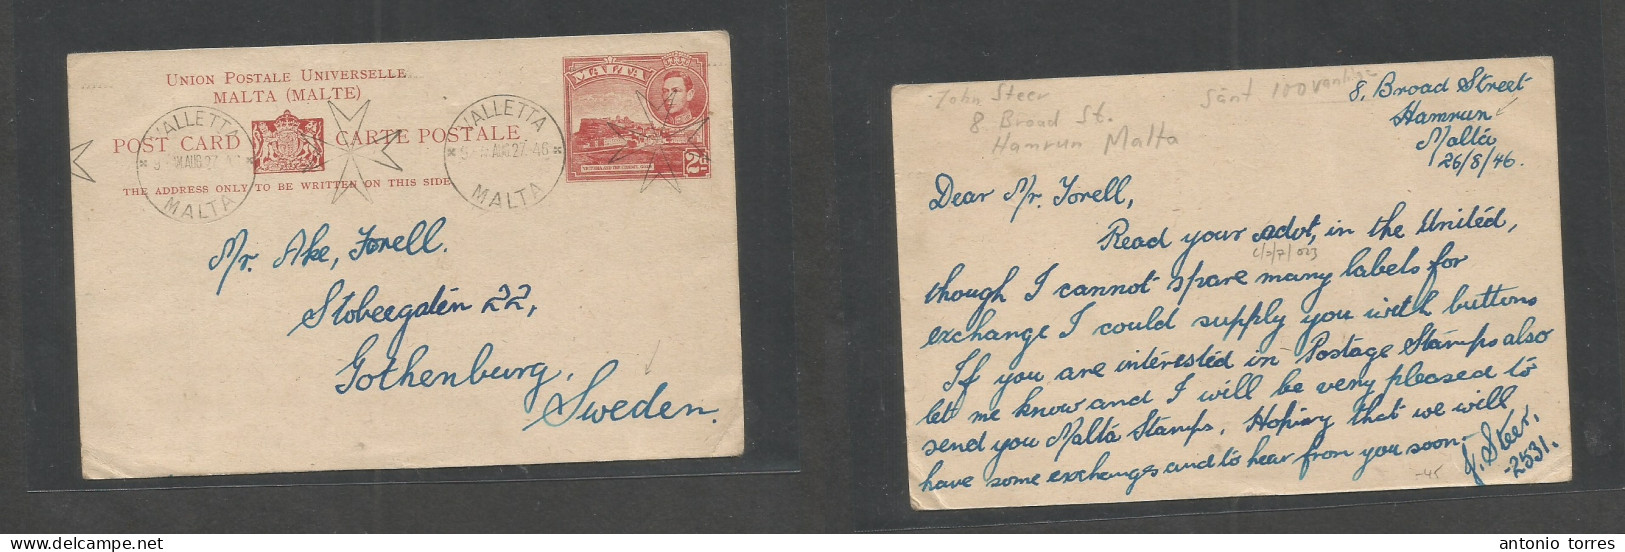 UNION POSTALE UNIVERSELLE
MALTA (MALTE)
POST CARD CARTE POSTALE
THE ADDRESS ONLY TO BE WRITTEN ON THIS SIDE
VALLETTA
AUG 27
MALTA
VALLETTA
AUG 27 46
MALTA
MALTA
2d
Mr. Ake, Forell.
22,
Gothenburg.
Sweden.
John Steer
8 Broad St.
Hamrun Malta
Sänt 100
8, Broad Street
Hamrun
Malta
26/8/46.
Dear Mr. Forell,
Read your advt, in the United,
though I cannot spare many labels for
exchange I could supply you with buttons
If you are interested in Postage Stamps also
let me know and I will be very pleased to
send you Malta Stamps. Hoping that we will
have some exchanges and to hear from you soon.
J. Steer.
-2531.
-45
antonio torres